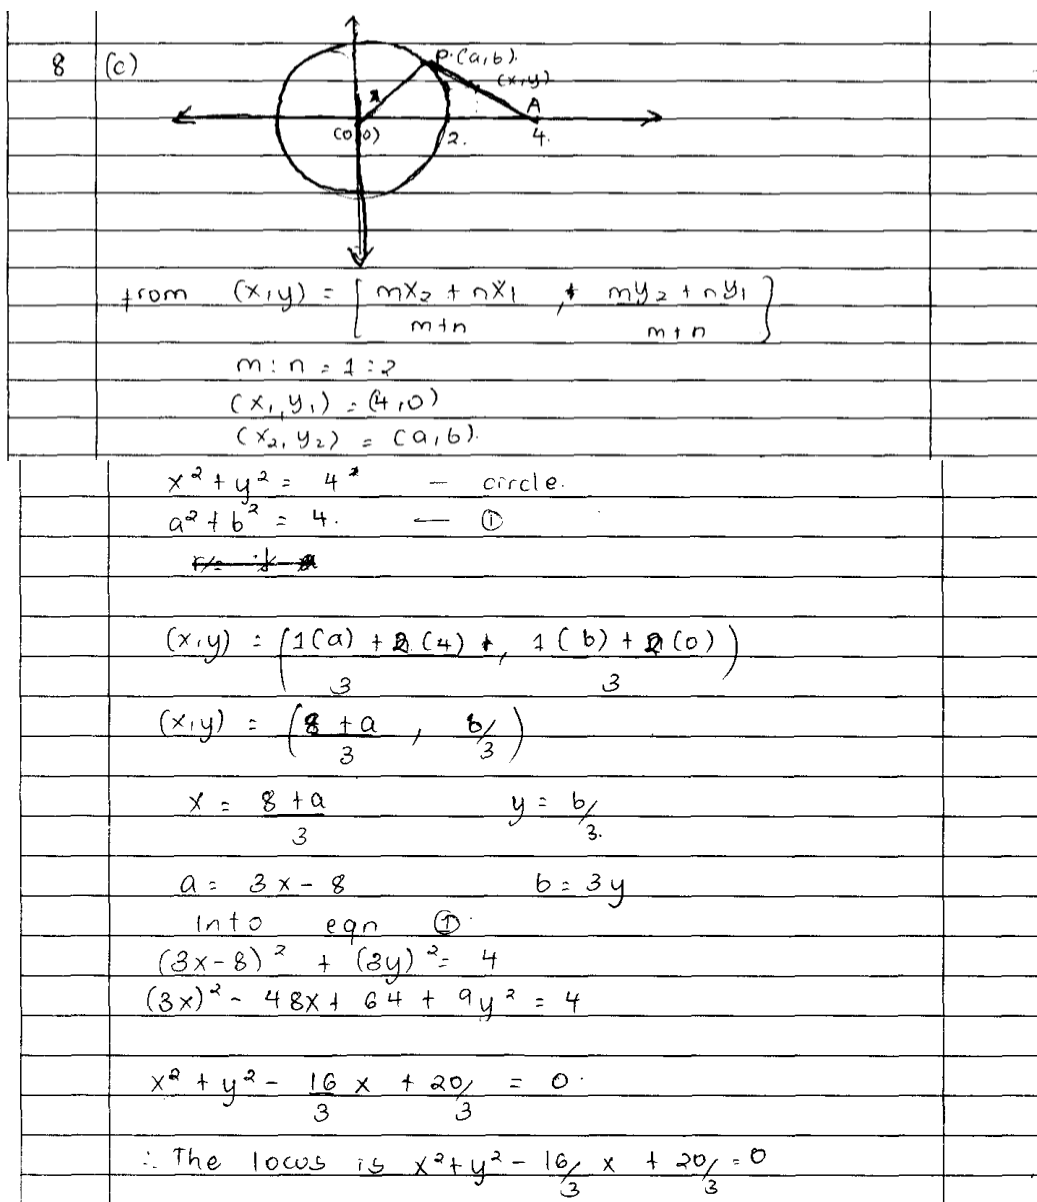 8 (c)
P.(a,b).
(x,y)
A
(0,0) 2. 4.
from (x,y) = [ mx₂ + nx₁ / m+n , my₂ + ny₁ / m+n ]
m : n = 1 : 2
(x₁, y₁) = (4,0)
(x₂, y₂) = (a,b).
x² + y² = 4 — circle.
a² + b² = 4. — ①
(x,y) = ( 1(a) + 2(4) / 3 , 1(b) + 2(0) / 3 )
(x,y) = ( 8 + a / 3 , b/3 )
x = 8 + a / 3 y = b/3.
a = 3x - 8 b = 3y
Into eqn ①.
(3x-8)² + (3y)² = 4
(3x)² - 48x + 64 + 9y² = 4
x² + y² - 16/3 x + 20/3 = 0.
∴ The locus is x² + y² - 16/3 x + 20/3 = 0